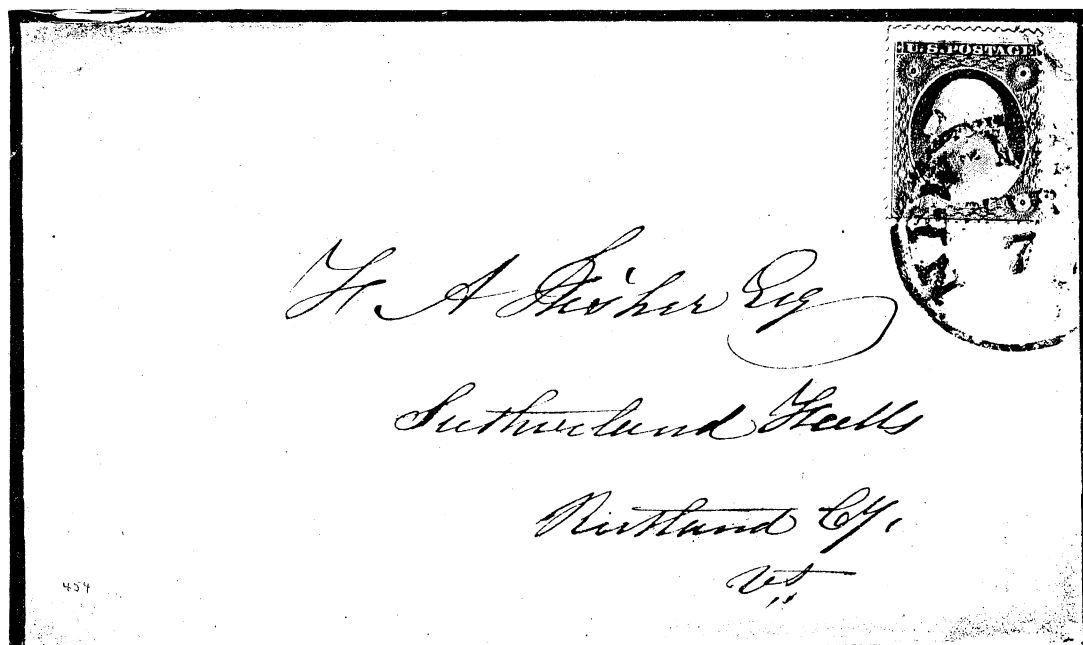 U.S. POSTAGE
7
H A Fisher Esq
Sutherland Falls
Rutland Cy.
Vt.
454